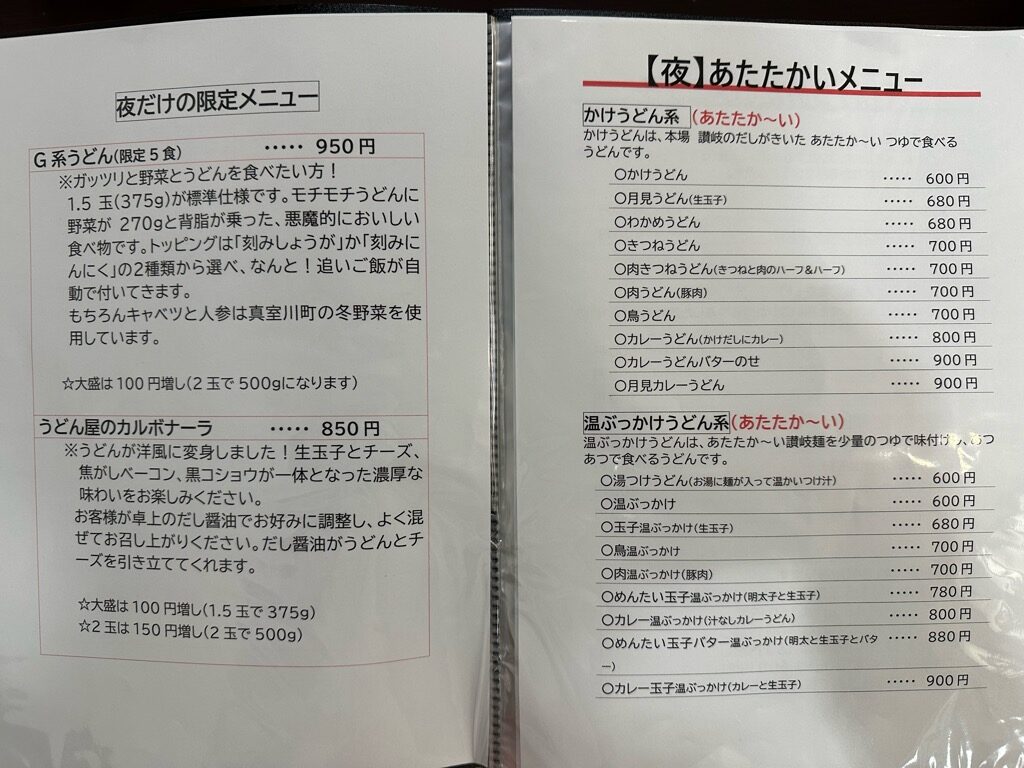 夜だけの限定メニュー
G系うどん(限定5食) ‥‥‥ 950円
※ガッツリと野菜とうどんを食べたい方！
1.5 玉(375g)が標準仕様です。モチモチうどんに
野菜が 270gと背脂が乗った、悪魔的においしい
食べ物です。トッピングは「刻みしょうが」か「刻みに
んにく」の2種類から選べ、なんと！追いご飯が自
動で付いてきます。
もちろんキャベツと人参は真室川町の冬野菜を使
用しています。
☆大盛は100円増し(2玉で500gになります)
うどん屋のカルボナーラ ‥‥‥ 850円
※うどんが洋風に変身しました！生玉子とチーズ、
焦がしベーコン、黒コショウが一体となった濃厚な
味わいをお楽しみください。
お客様が卓上のだし醤油でお好みに調整し、よく混
ぜてお召し上がりください。だし醤油がうどんとチ
ーズを引き立ててくれます。
☆大盛は100円増し(1.5玉で375g)
☆2玉は150円増し(2玉で500g)
【夜】あたたかいメニュー
かけうどん系 (あたたか～い)
かけうどんは、本場 讃岐のだしがきいた あたたか～い つゆで食べる
うどんです。
〇かけうどん ‥‥‥ 600円
〇月見うどん(生玉子) ‥‥‥ 680円
〇わかめうどん ‥‥‥ 680円
〇きつねうどん ‥‥‥ 700円
〇肉きつねうどん(きつねと肉のハーフ＆ハーフ) ‥‥‥ 700円
〇肉うどん(豚肉) ‥‥‥ 700円
〇鳥うどん ‥‥‥ 700円
〇カレーうどん(かけだしにカレー) ‥‥‥ 800円
〇カレーうどんバターのせ ‥‥‥ 900円
〇月見カレーうどん ‥‥‥ 900円
温ぶっかけうどん系(あたたか～い)
温ぶっかけうどんは、あたたか～い讃岐麺を少量のつゆで味付けし、あつ
あつで食べるうどんです。
〇湯つけうどん(お湯に麺が入って温かいつけ汁) ‥‥‥ 600円
〇温ぶっかけ ‥‥‥ 600円
〇玉子温ぶっかけ(生玉子) ‥‥‥ 680円
〇鳥温ぶっかけ ‥‥‥ 700円
〇肉温ぶっかけ(豚肉) ‥‥‥ 700円
〇めんたい玉子温ぶっかけ(明太子と生玉子) ‥‥‥ 780円
〇カレー温ぶっかけ(汁なしカレーうどん) ‥‥‥ 800円
〇めんたい玉子バター温ぶっかけ(明太と生玉子とバタ ‥‥‥ 880円
ー)
〇カレー玉子温ぶっかけ(カレーと生玉子) ‥‥‥ 900円